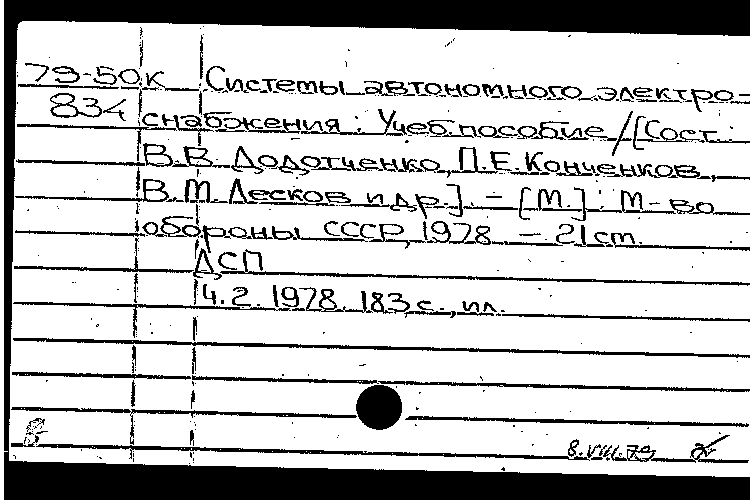 79-50к Системы автономного электро-
834 снабжения: Учеб.пособие/[Сост.:
В.В. Додотченко, П.Е.Конченков,
В.М. Лесков и др.]. – [М.]: М-во
обороны СССР, 1978. – 21 cm.
ДСП
4.2. 1978. 183 с., ил.
В
8.VIII.79